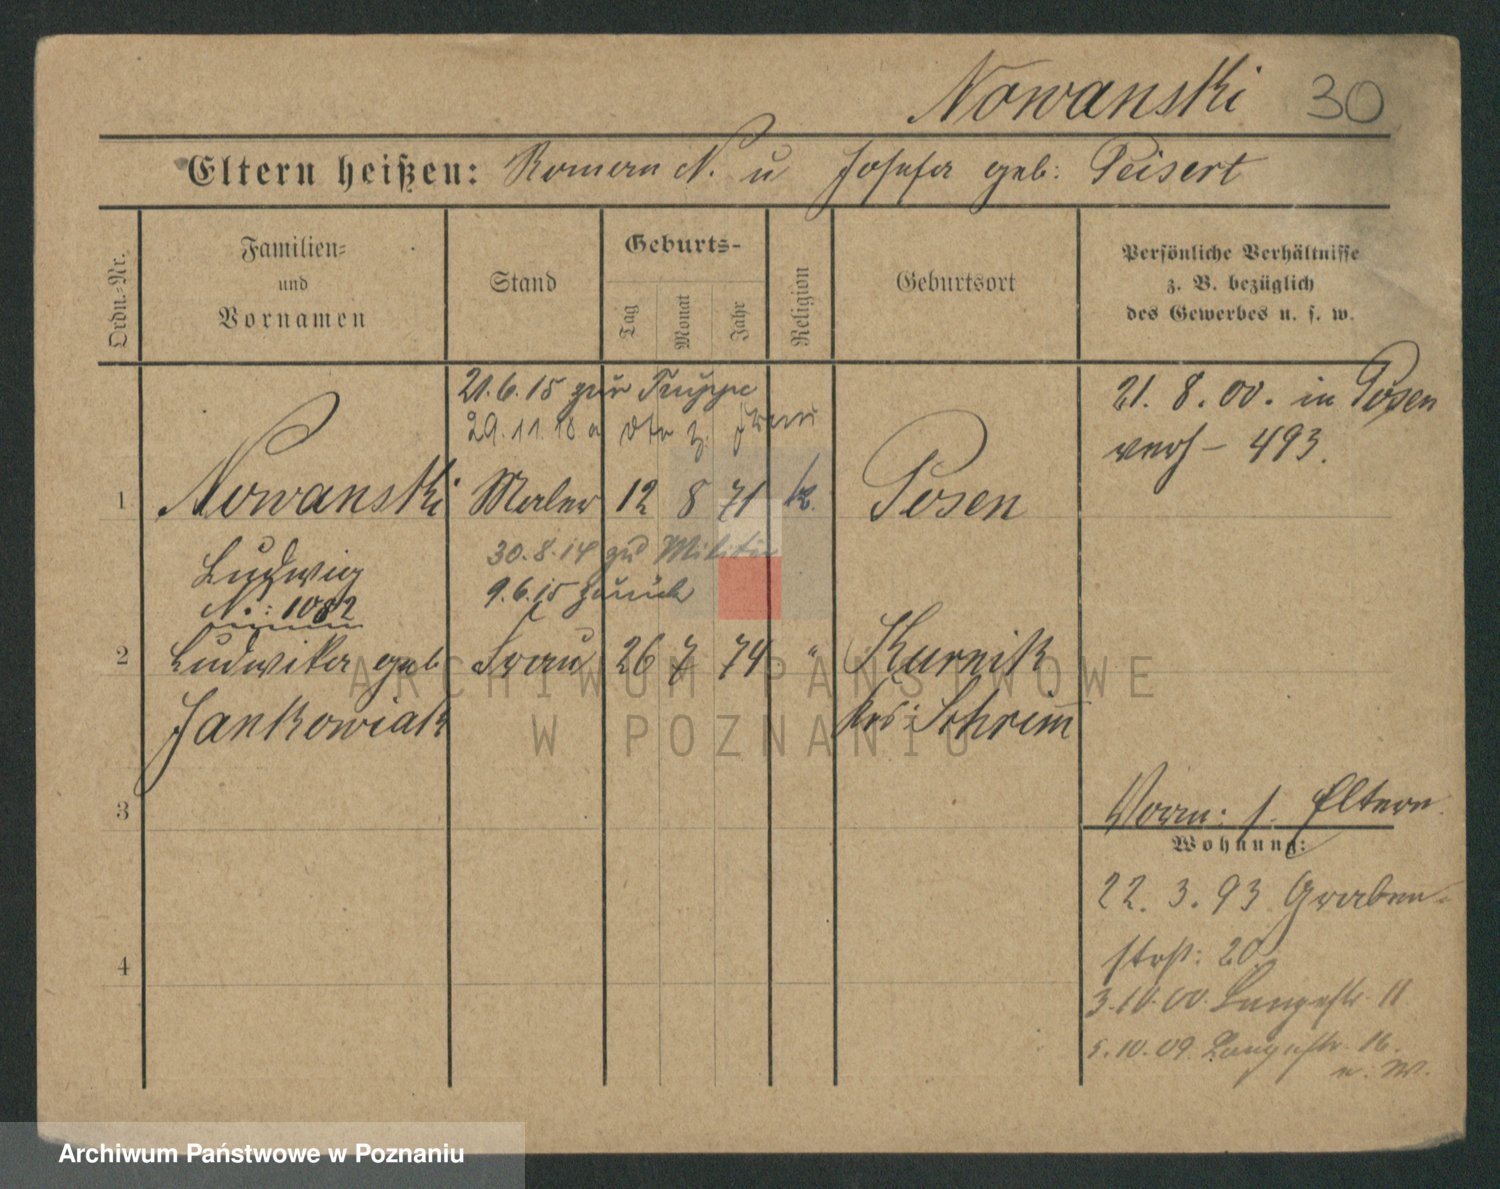 Nowanski 30
Eltern heißen: Roman N. u Josefa geb: Peisert
Ordn.-Nr.
Familien-
und
Vornamen
Stand
Geburts-
Tag
Monat
Jahr
Religion
Geburtsort
Persönliche Verhältnisse
z. B. bezüglich
des Gewerbes u. s. w.
21.6.15 zur Truppe
29.11.18 a
21. 8. 00. in Posen
verh - 493.
1 Nowanski Maler 12 8 71 k. Posen
Ludwig
N.: 1082
30.8.14 zu Militär
9.6.15 zurück
2 Ludwika geb Frau 26 7 74 " Kurnik
Jankowiak Krs: Schrimm
3
4
Vorm: s. Eltern
Wohnung:
22. 3. 93 Graben-
strß: 20
3.10.00. Langestr. 11
5.10.09. Langestr. 16.
n. W.
ARCHIWUM PAŃSTWOWE
W POZNANIU
Archiwum Państwowe w Poznaniu